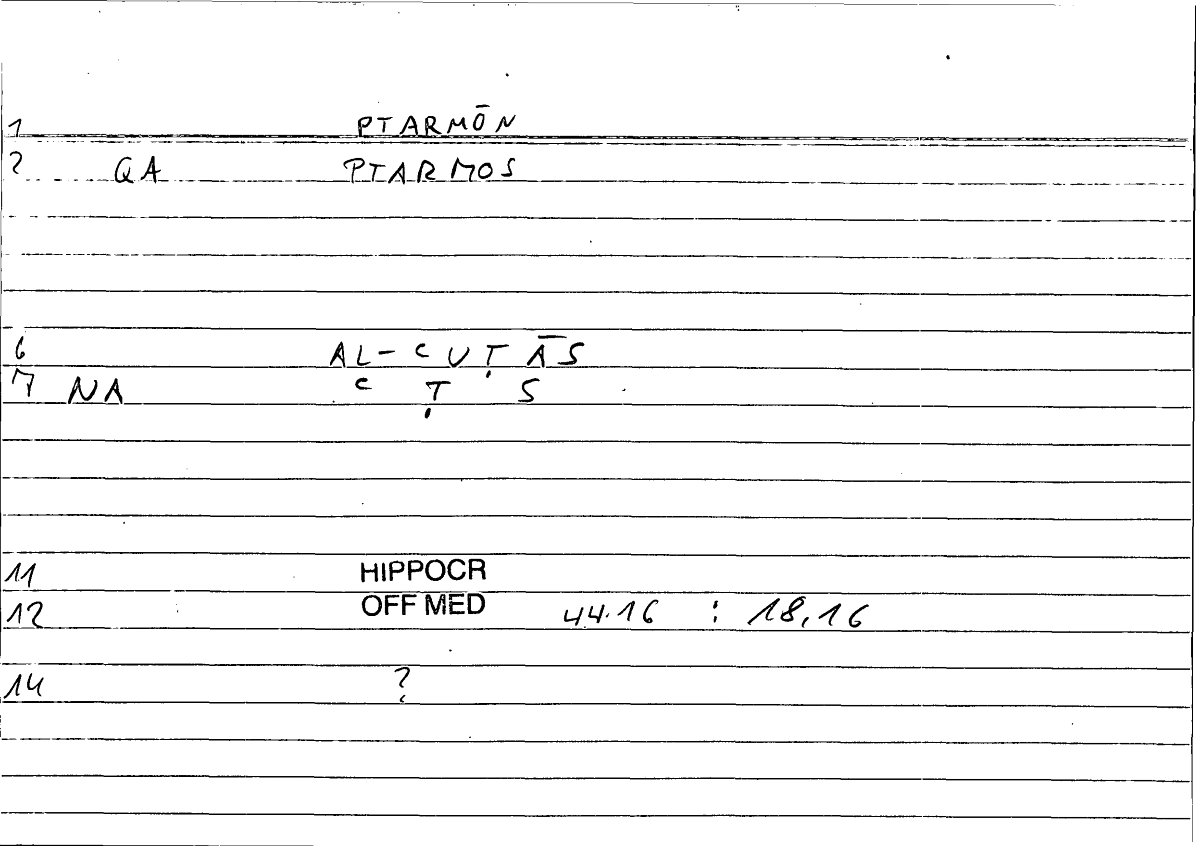 1 PTARMŌN
2 QA PTARMOS
6 AL-ᶜUṬĀS
7 NA ᶜ Ṭ S
11 HIPPOCR
12 OFF MED 44.16 : 18,16
14 ?